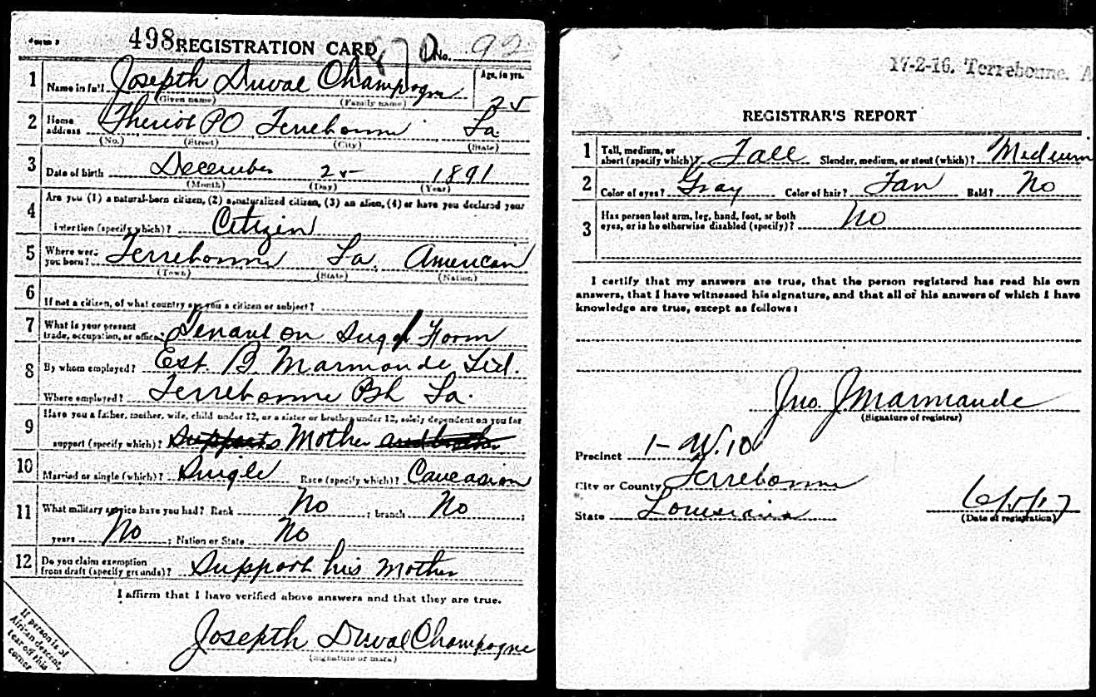 498 REGISTRATION CARD No. 92
1 Name in full Josepth Duval Champagne Age, in yrs.
(Given name) (Family name) 25
2 Home address Theriot PO Terrebonne La
(No.) (Street) (City) (State)
3 Date of birth December 25 1891
(Month) (Day) (Year)
4 Are you (1) a natural-born citizen, (2) a naturalized citizen, (3) an alien, (4) or have you declared your
intention (specify which)? Citizen
5 Where were you born? Terrebonne La. American
(Town) (State) (Nation)
6 If not a citizen, of what country are you a citizen or subject?
7 What is your present trade, occupation, or office? Tenant on Sugar Farm
8 By whom employed? Est. B. Marmande Ltd.
Where employed? Terrebonne Psh La.
9 Have you a father, mother, wife, child under 12, or a sister or brother under 12, solely dependent on you for
support (specify which)? Supports Mother and brother
10 Married or single (which)? Single Race (specify which)? Caucasian
11 What military service have you had? Rank No ; branch No ;
years No ; Nation or State No
12 Do you claim exemption from draft (specify grounds)? Support his Mother
I affirm that I have verified above answers and that they are true.
Josepth Duval Champagne
(Signature or mark)
If person is of
African descent,
tear off this
corner
17-2-16. Terrebonne. A
REGISTRAR'S REPORT
1 Tall, medium, or short (specify which)? Tall Slender, medium, or stout (which)? Medium
2 Color of eyes? Gray Color of hair? Tan Bald? No
3 Has person lost arm, leg, hand, foot, or both
eyes, or is he otherwise disabled (specify)? No
I certify that my answers are true, that the person registered has read his own
answers, that I have witnessed his signature, and that all of his answers of which I have
knowledge are true, except as follows:
Jno. J Marmande
(Signature of registrar)
Precinct 1- W. 10
City or County Terrebonne
State Louisiana 6/5/17
(Date of registration)